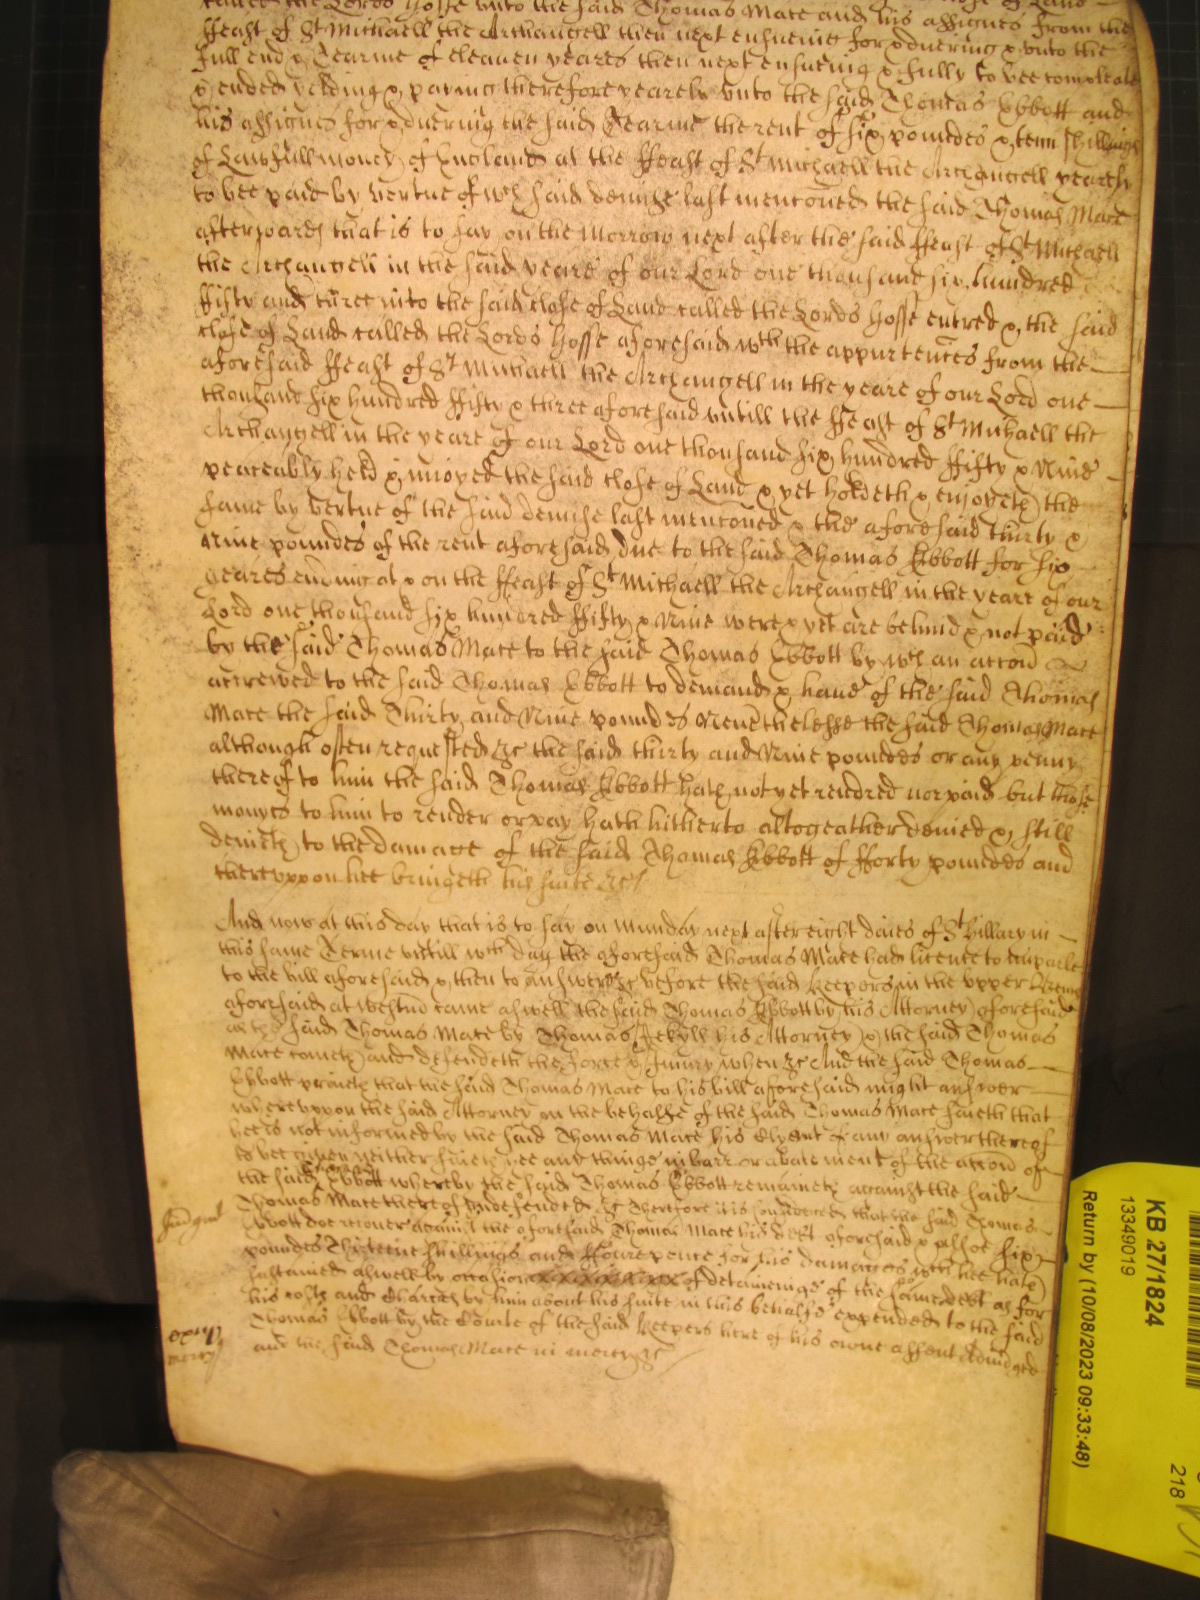 called the Lords Hosse unto the said Thomas Mace and his assignes from the
ffeast of St Michaell the Archangell then next ensueing for & dureing & unto the
full end & Tearme of eleaven yeares then next ensueing & fully to bee compleate
& ended yelding & paying therefore yearely unto the said Thomas Ebbott and
his assignes for & dureing the said Tearme the rent of six poundes & tenn shillings
of Lawfull money of England at the ffeast of St Michaell the Archangell yearely
to bee paid by vertue of wch said demise last mentoned the said Thomas Mace
afterwards that is to say on the Morrow next after the said ffeast of St Michaell
the Archangell in the said yeare of our Lord one thousand six hundred
ffifty and three into the said close of Land called the Lords Hosse entred & the said
close of Land called the Lords Hosse aforesaid wth the appurtences from the
aforesaid ffeast of St Michaell the Archangell in the yeare of our Lord one
thousand six hundred ffifty & three aforesaid untill the ffeast of St Michaell the
Archangell in the yeare of our Lord one thousand six hundred ffifty & Nine
peaceably held & injoyed the said close of Land & yet holdeth & enjoyeth the
same by vertue of the said demise last mentoned & the aforesaid thirty &
Nine poundes of the rent aforesaid due to the said Thomas Ebbott for six
yeares ending at & on the ffeast of St Michaell the Archangell in the yeare of our
Lord one thousand six hundred ffifty & Nine were & yet are behind & not paid
by the said Thomas Mace to the said Thomas Ebbott by wch an accon
accrewed to the said Thomas Ebbott to demand & have of the said Thomas
Mace the said Thirty and Nine poundes Neverthelesse the said Thomas Mace
although often requested &c the said thirty and Nine poundes or any penny
thereof to him the said Thomas Ebbott hath not yet rendred nor paid but those
moneys to him to render or pay hath hitherto altogeather denied & still
denieth to the damage of the said Thomas Ebbott of fforty poundes and
thereuppon hee bringeth his suite &c
And now at this day that is to say on Munday next after eight daies of St Hillary in
this same Terme untill wch day the aforesaid Thomas Mace had licence to imparle
to the bill aforesaid & then to answere &c before the said Keepers in the upper Bench
aforesaid at Westm came aswell the said Thomas Ebbott by his Attorney aforesaid
as the said Thomas Mace by Thomas Jekyll his Attorney & the said Thomas
Mace cometh and defendeth the force & Injury when &c And the said Thomas
Ebbott prayeth that the said Thomas Mace to his bill aforesaid might answer
whereuppon the said Attorney on the behalfe of the said Thomas Mace saieth that
hee is not informed by the said Thomas Mace his Clyent of any answer thereof
to bee given neither saieth hee any thinge in barr or abatement of the accon of
the said Thomas Ebbott whereby the said Thomas Ebbott remaineth against the said
Thomas Mace thereof undefended &c Therefore it is considered that the said Thomas
Judgmt
Ebbott doe recover against the aforesaid Thomas Mace his debt aforesaid & alsoe six
poundes Thirteene shillings and ffourepence for his damages wch hee hath
sustained aswell by occasion of detaineinge of the same debt as for
his costs and Charges by him about his suite in this behalfe expended to the said
Thomas Ebbott by the Courte of the said Keepers here of his owne assent Adiudged
and the said Thomas Mace in mercy &c
mercy
KB 27/1824
13349019
Return by (10/08/2023 09:33:48)
218